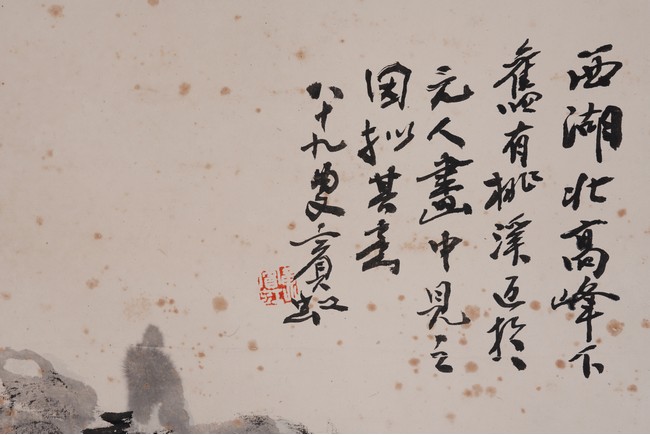 西湖北高峰下
舊有桃溪近於
元人畫中見之
因拟其意
八十九叟賓虹